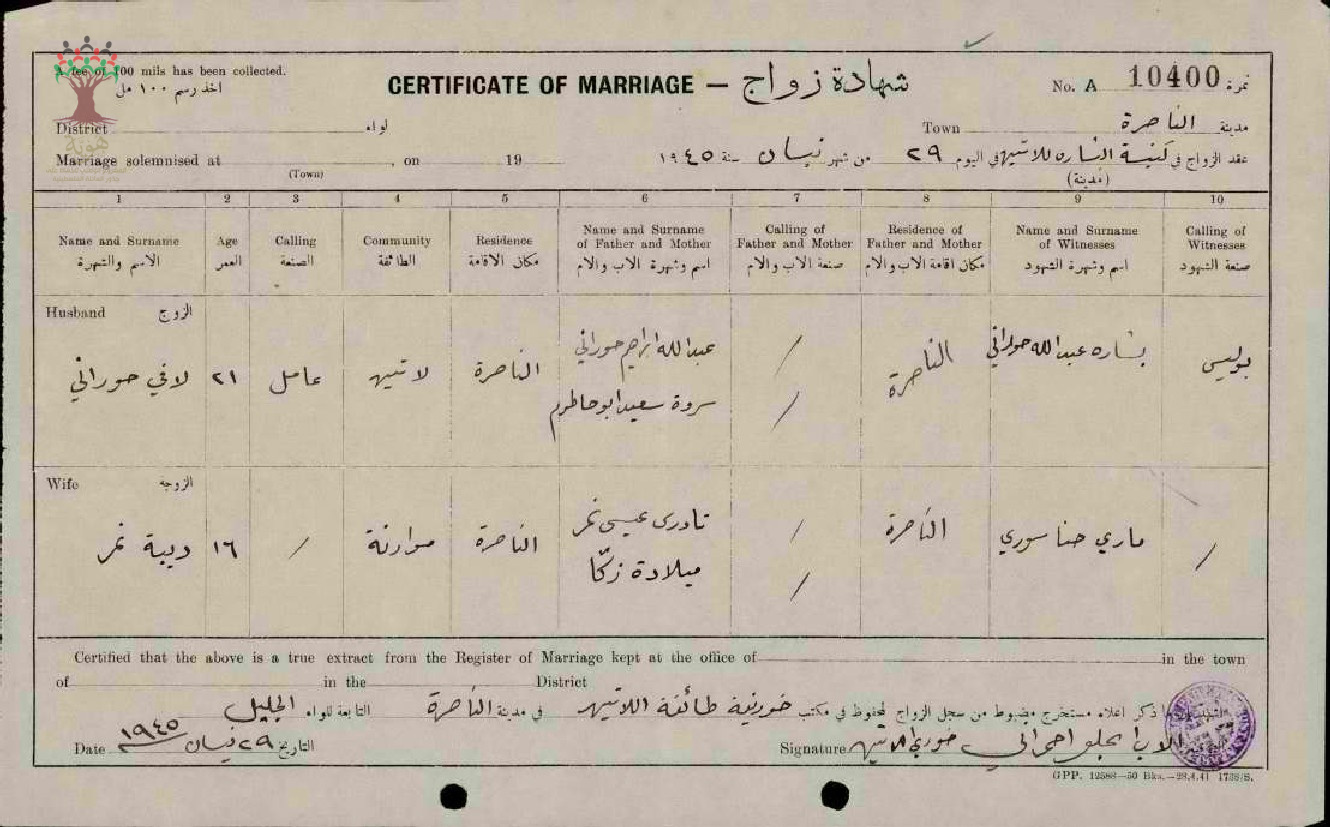 A fee of 100 mils has been collected.
اخذ رسم ١٠٠ مل
CERTIFICATE OF MARRIAGE — شهادة زواج
No. A 10400 نمرة
District لواء
Town الناصرة مدينة
Marriage solemnised at , on 19
(Town)
عقد الزواج في كنيسة البشاره للاتين في اليوم ٢٩ من شهر نيسان سنة ١٩٤٥
(مدينة)
هوية
1 2 3 4 5 6 7 8 9 10
Name and Surname
الاسم والشهرة
Age
العمر
Calling
الصنعة
Community
الطائفة
Residence
مكان الاقامة
Name and Surname of Father and Mother
اسم وشهرة الاب والام
Calling of Father and Mother
صنعة الاب والام
Residence of Father and Mother
مكان اقامة الاب والام
Name and Surname of Witnesses
اسم وشهرة الشهود
Calling of Witnesses
صنعة الشهود
Husband الزوج
لافي حوراني
٢١
عامل
لاتين
الناصرة
عبدالله ابراهيم حوراني
سروة سعيد ابو حاطوم
/
/
الناصرة
بشاره عبدالله حوراني
بوليس
Wife الزوجة
ديبة نمر
١٦
/
موارنة
الناصرة
عيسى نمر
ميلادة زكّا
/
/
الناصرة
ماري حنا سوري
/
Certified that the above is a true extract from the Register of Marriage kept at the office of in the town
of in the District
ذكر اعلاه مستخرج مضبوط من سجل الزواج المحفوظ في مكتب خورنية طائفة اللاتين في مدينة الناصرة التابعة للواء الجليل
Date ١٩٤٥ نيسان ٢٩ التاريخ
Signature الاب خوري اللاتين
GPP. 12588—50 Bks.—28.4.41 1738/S.